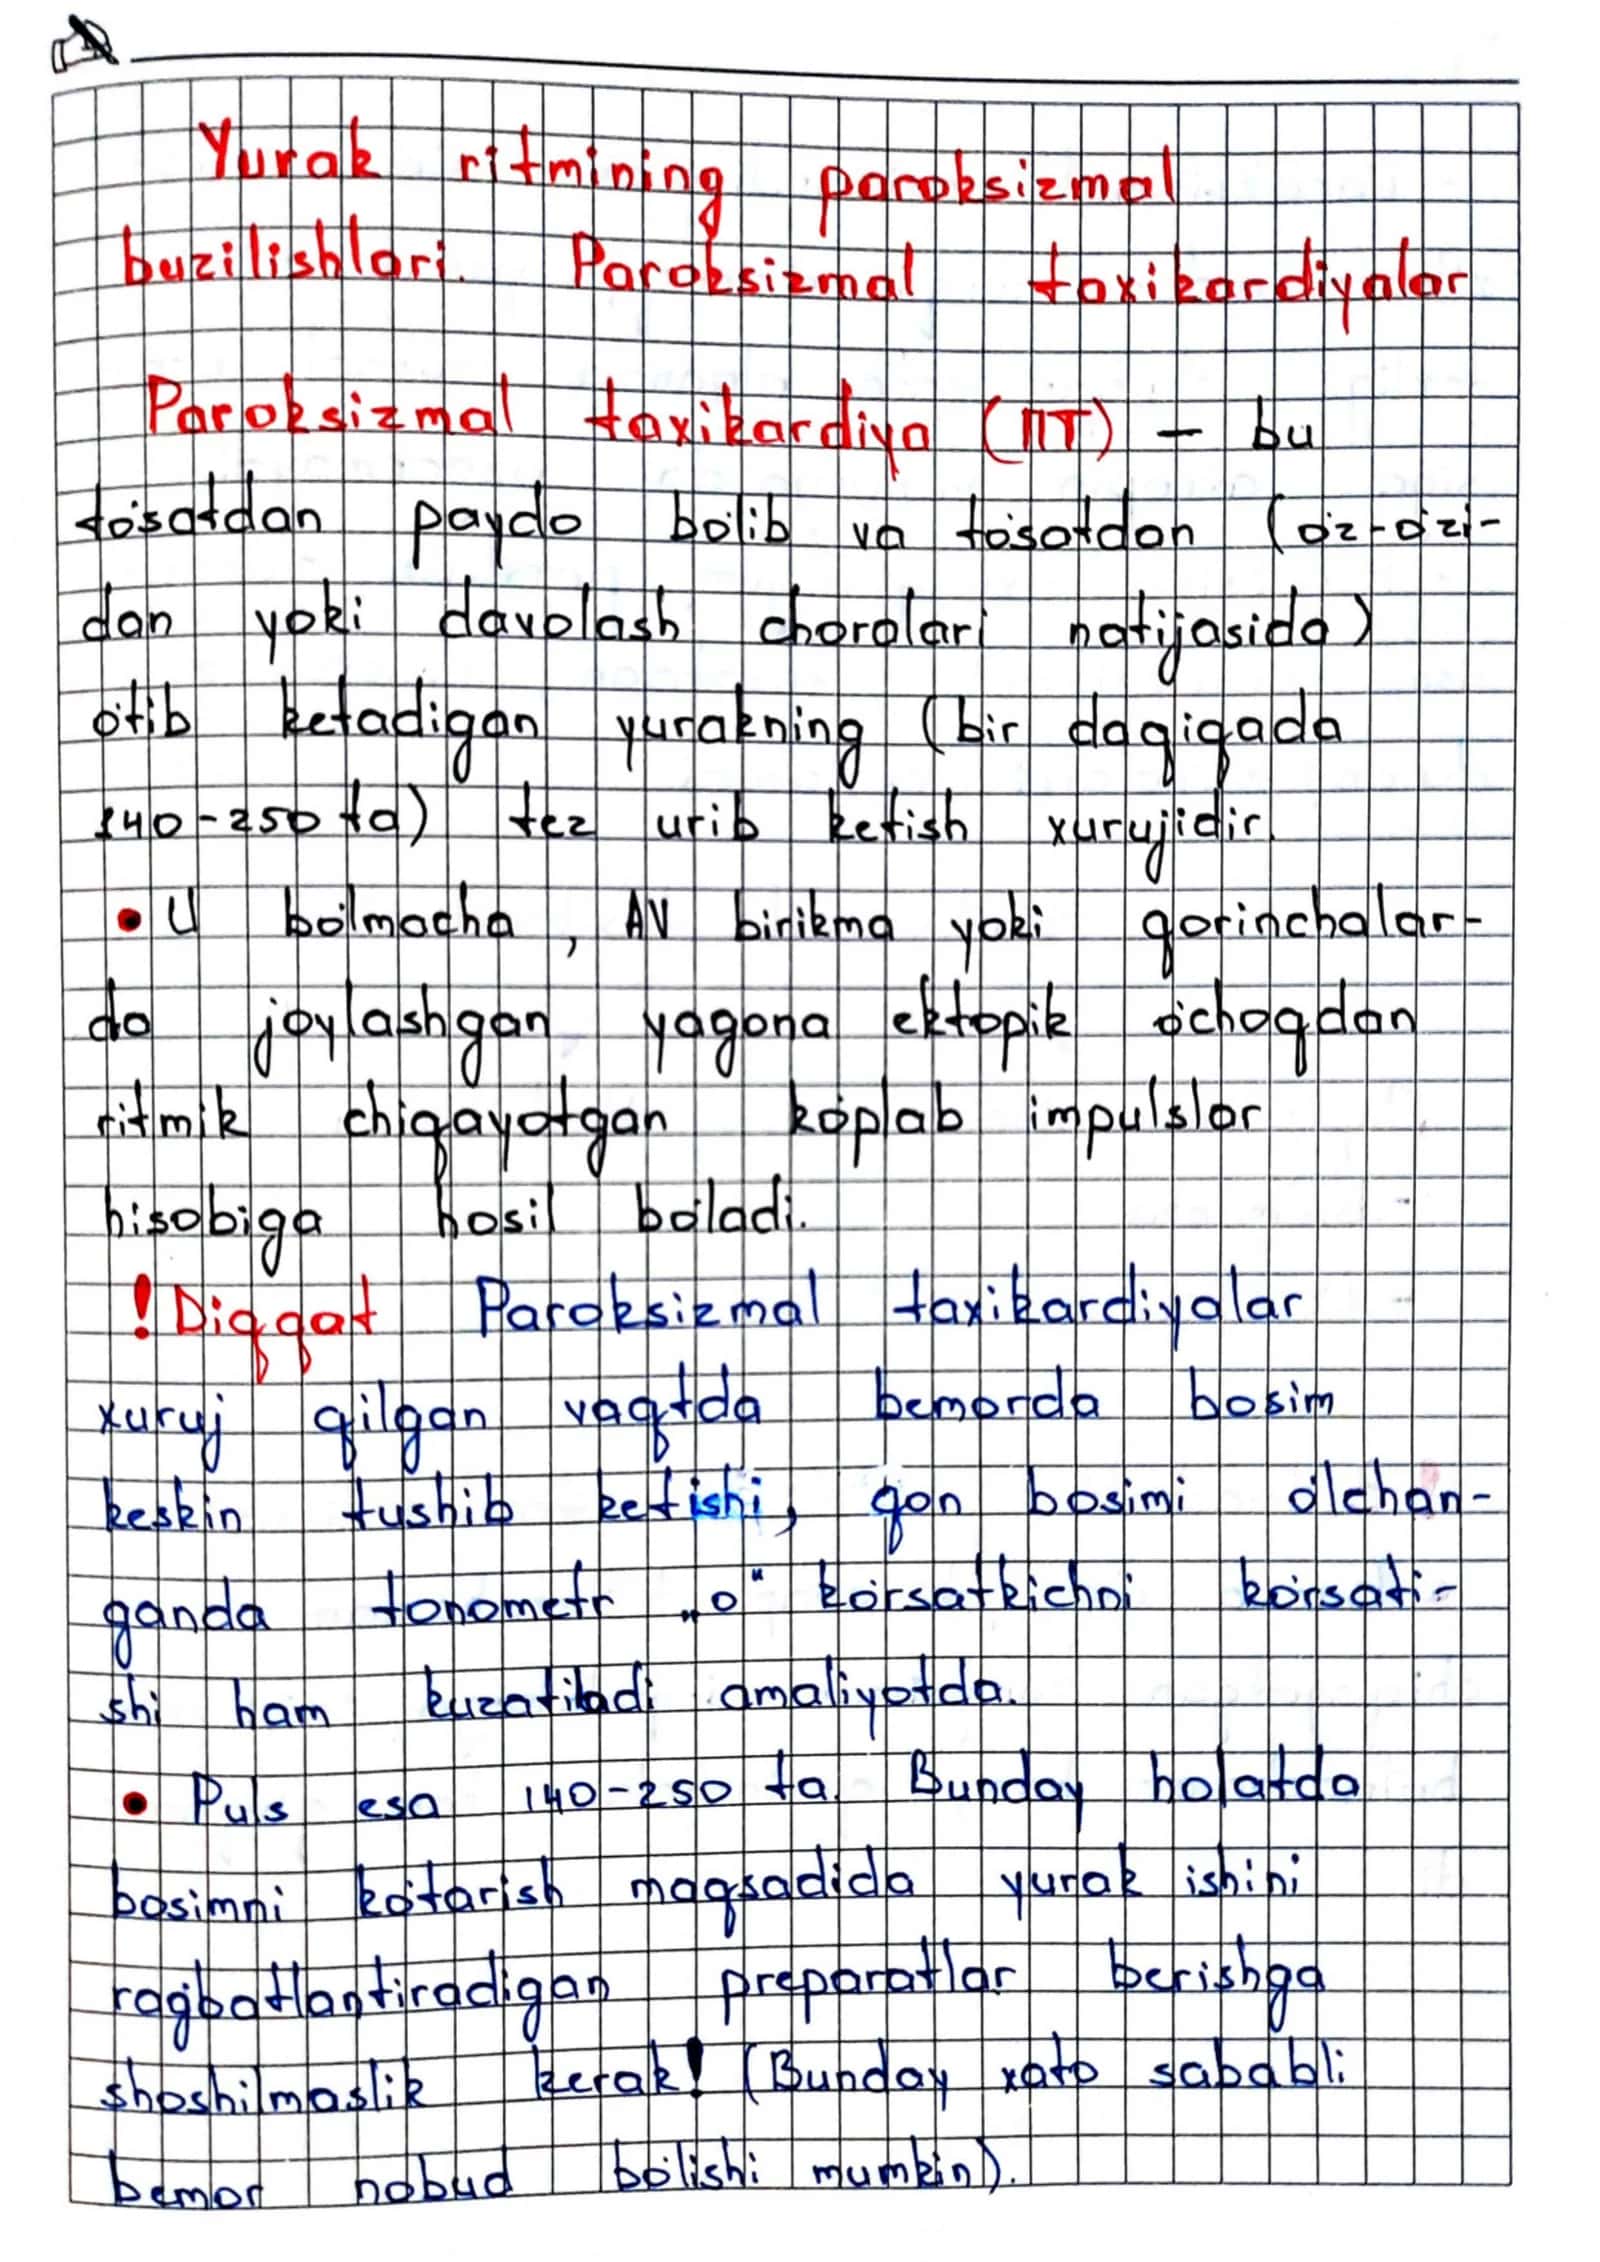 Yurak ritmining paroksizmal
buzilishlari. Paroksizmal taxikardiyalar
Paroksizmal taxikardiya (ПТ) – bu
to'satdan paydo bo'lib va to'satdan (o'z-o'zi-
dan yoki davolash choralari natijasida)
o'tib ketadigan yurakning (bir daqiqada
140-250 ta) tez urib ketish xurujidir.
• U bo'lmacha, AV birikma yoki qorinchalar-
da joylashgan yagona ektopik o'choqdan
ritmik chiqayotgan ko'plab impulslar
hisobiga hosil bo'ladi.
! Diqqat Paroksizmal taxikardiyalar
xuruj qilgan vaqtda bemorda bosim
keskin tushib ketishi, qon bosimi o'lchan-
ganda tonometr „0“ ko'rsatkichni ko'rsati-
shi ham kuzatiladi amaliyotda.
• Puls esa 140-250 ta. Bunday holatda
bosimni ko'tarish maqsadida yurak ishini
rag'batlantiradigan preparatlar berishga
shoshilmaslik kerak! (Bunday xato sababli
bemor nobud bo'lishi mumkin).